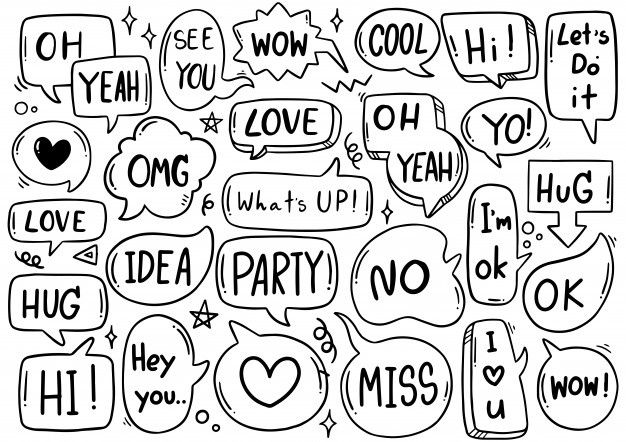 OH
YEAH
SEE
YOU
WOW
COOL
Hi!
Let's
Do
it
LOVE
OH
YEAH
YO!
OMG
What's UP!
HuG
LOVE
I'm
ok
IDEA
PARTY
NO
OK
HUG
HI!
Hey
you..
MISS
I
u
WOW!